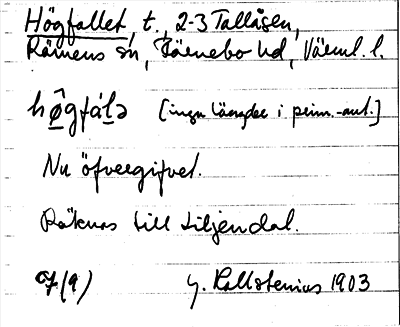 Högfallet, t., 2-3 Tallåsen,
Rämens sn, Färnebo hd, Värml. l.
hø̂gfàlə [inga längder i prim.-ant.]
Nu öfvergifvet.
Räknas till Liljendal.
G. Kallstenius 1903